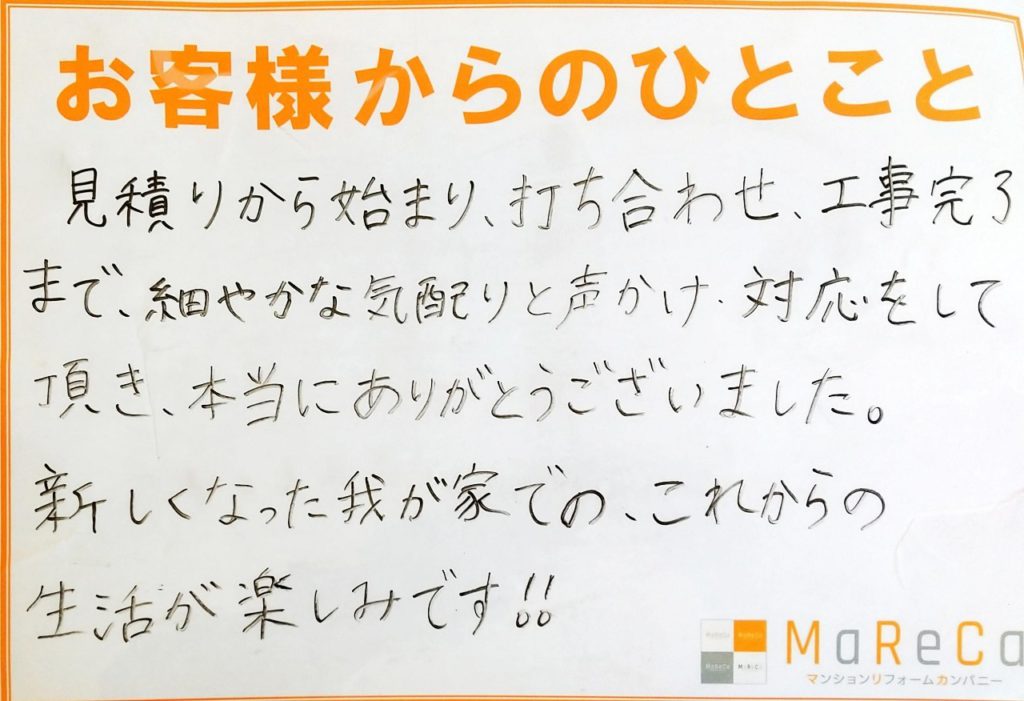 お客様からのひとこと
見積りから始まり、打ち合わせ、工事完了
まで、細やかな気配りと声かけ・対応をして
頂き、本当にありがとうございました。
新しくなった我が家での、これからの
生活が楽しみです!!
MaReCa
マンションリフォームカンパニー